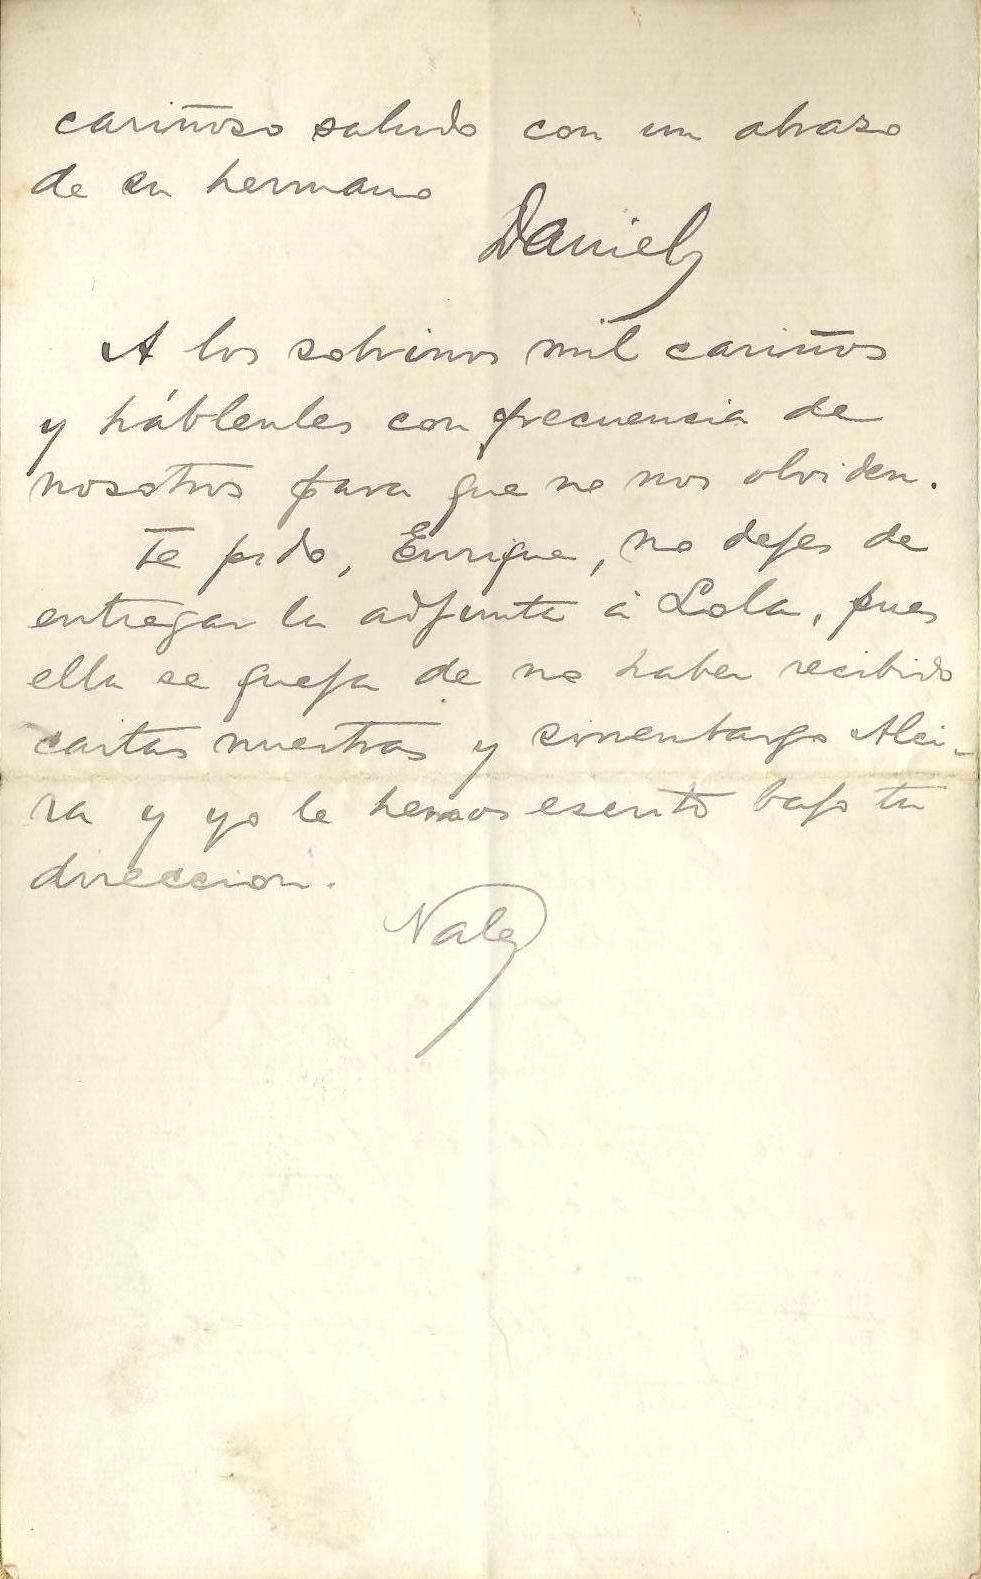 cariñoso saludo con un abrazo
de su hermano
Daniel
A los sobrinos mil cariños
y háblenles con frecuencia de
nosotros para que no nos olviden.
Te pido, Enrique, no dejes de
entregar la adjunta á Lola, pues
ella se queja de no haber recibido
cartas nuestras y sinembargo Alci-
ra y yo le hemos escrito bajo tu
direccion.
Vale